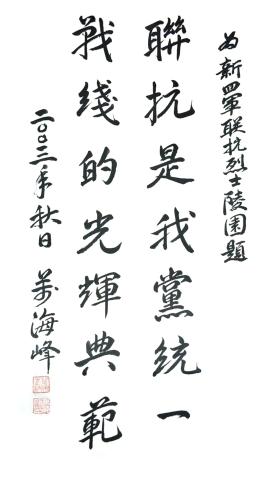 为新四軍联抗烈士陵园題
聯抗是我黨統一
戰线的光輝典範
二〇〇三年秋日 万海峰